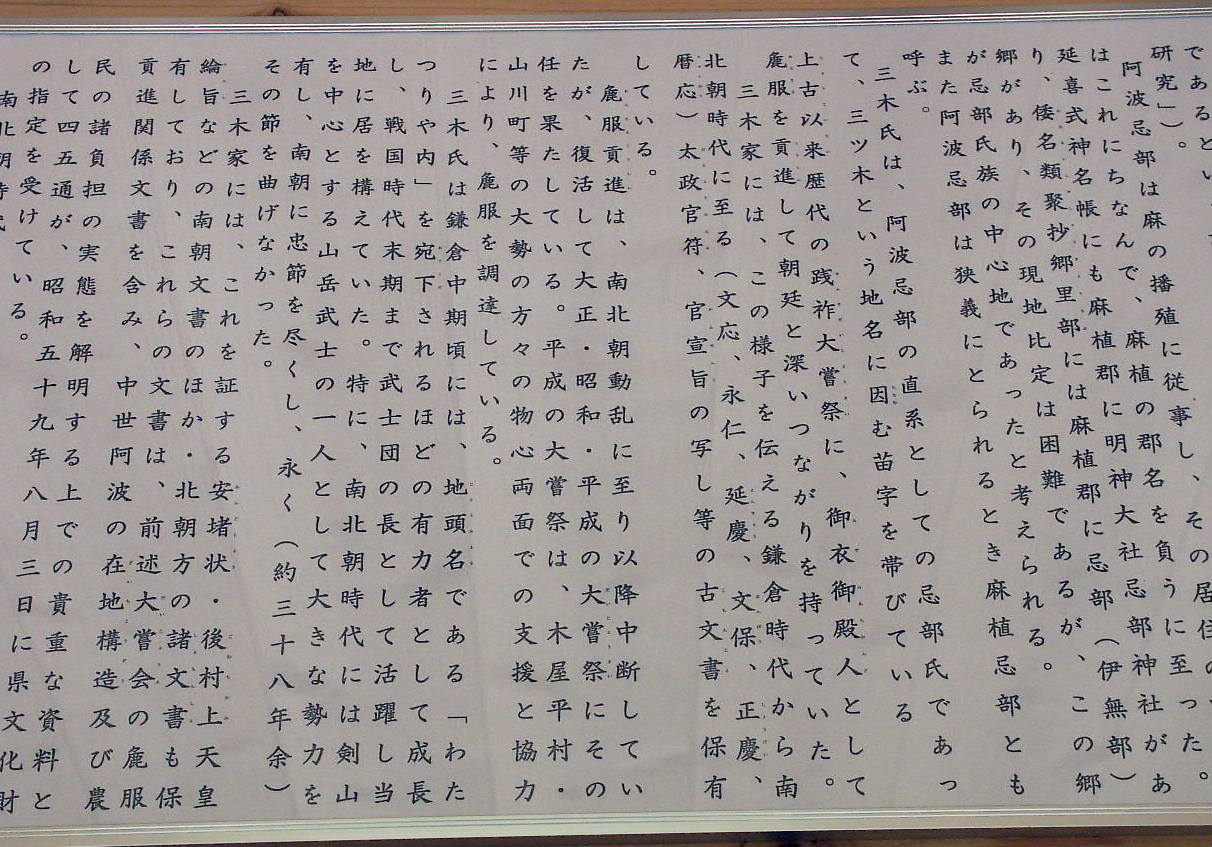 であるとい
研究」）。
阿波忌部は麻の播殖に従事し、その居住の
はこれにちなんで、麻植の郡名を負うに至った。
延喜式神名帳にも麻植郡に明神大社忌部神社があ
り、倭名類聚抄郷里部には麻植郡に忌部（伊無部）
郷があり、その現地比定は困難であるが、この郷
が忌部氏族の中心地であったと考えられる。
また阿波忌部は狭義にとられるとき麻植忌部とも
呼ぶ。
三木氏は、阿波忌部の直系としての忌部氏であっ
て、三ツ木という地名に因む苗字を帯びている
上古以来歴代の践祚大嘗祭に、御衣御殿人として
麁服を貢進して朝廷と深いつながりを持っていた。
三木家には、この様子を伝える鎌倉時代から南
北朝時代に至る（文応、永仁、延慶、文保、正慶、
暦応）太政官符、官宣旨の写し等の古文書を保有
している。
麁服貢進は、南北朝動乱に至り以降中断してい
たが、復活して大正・昭和・平成の大嘗祭にその
任を果たしている。平成の大嘗祭は、木屋平村・
山川町等の大勢の方々の物心両面での支援と協力
により、麁服を調達している。
三木氏は鎌倉中期頃には、地頭名である「わた
つりや内」を宛下されるほどの有力者として成長
し、戦国時代末期まで武士団の長として活躍し当
地に居を構えていた。特に、南北朝時代には剣山
を中心とする山岳武士の一人として大きな勢力を
有し、南朝に忠節を尽くし、永く（約三十八年余）
その節を曲げなかった。
三木家には、これを証する安堵状・後村上天皇
綸旨などの南朝文書のほか・北朝方の諸文書も保
有しており、これらの文書は、前述大嘗会の麁服
貢進関係文書を含み、中世阿波の在地構造及び農
民の諸負担の実態を解明する上での貴重な資料と
して四五通が、昭和五十九年八月三日に県文化財
の指定を受けている。
南北朝時代